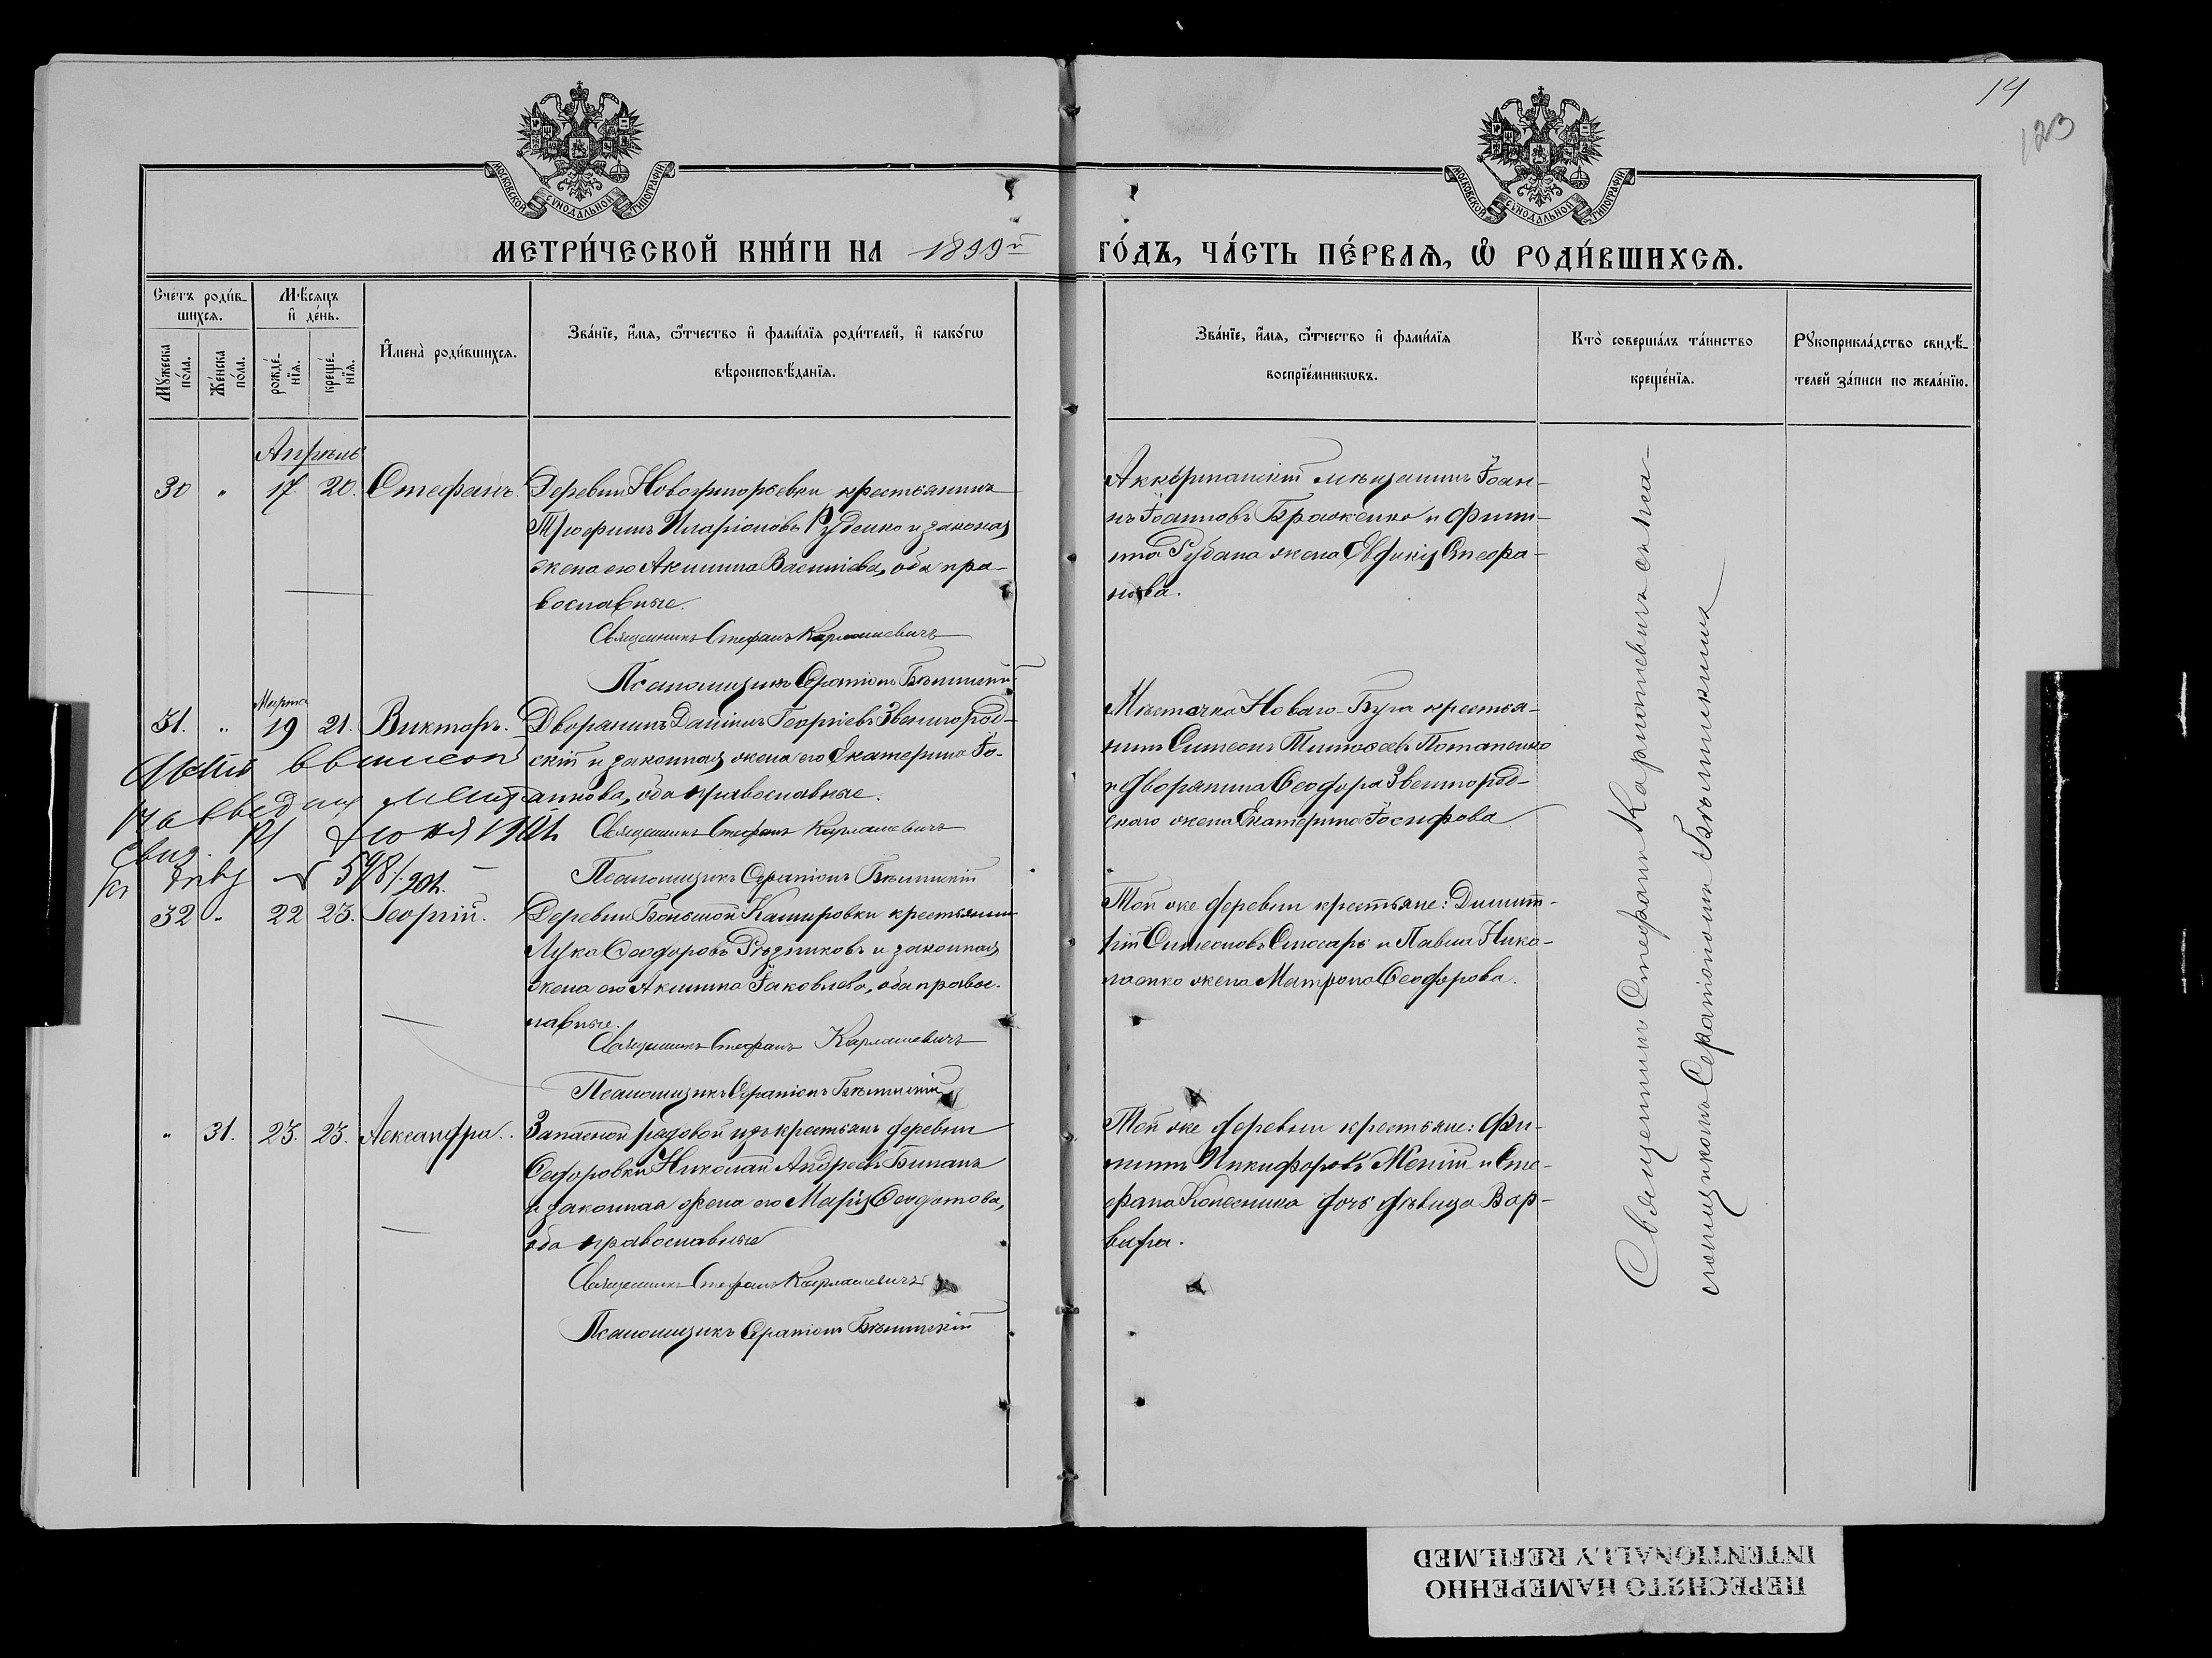 14
123
МОСКОВСКОЙ СѴНОДАЛЬНОЙ ТИПОГРАФІИ
МОСКОВСКОЙ СѴНОДАЛЬНОЙ ТИПОГРАФІИ
МЕТРИ́ЧЕСКОЙ КНИ́ГИ НА 1899й ГО́ДЪ, ЧА́СТЬ ПЕ́РВАѦ, Ѡ҆ РОДИ́ВШИХСѦ.
Счетъ роди́в-
шихсѧ.
Мѣсяцъ
и҆ де́нь.
Мꙋ́жеска
по́ла.
Же́нска
по́ла.
рожде́-
нїѧ.
креще́-
нїѧ.
И҆мена̀ роди́вшихсѧ.
Зва́нїе, и҆́мѧ, ѻ҆́тчество и҆ фами́лїѧ роди́телей, и҆ како́гѡ
вѣроисповѣ́данїѧ.
Зва́нїе, и҆́мѧ, ѻ҆́тчество и҆ фами́лїѧ
воспрїе́мникѡвъ.
Кто̀ соверша́лъ та́инство
креще́нїѧ.
Рꙋкоприкла́дство свидѣ́-
телей за́писи по жела́нїю.
Апрѣль
30 " 17. 20. Стефанъ.
Деревни Новогригорьевки крестьянинъ
Трофимъ Иларіоновъ Руденко и законая
жена его Акилина Василіева, оба пра-
вославные.
Священникъ Стефанъ Карлашевичъ
Псаломщикъ Серапіонъ Бѣлинскій
Аккерманскій мѣщанинъ Іоан-
нъ Іоанновъ Браженко и Филип-
па Рубана жена Евфимія Стефа-
нова.
Марта
31. " 19 21. Викторъ.
Дворянинъ Даніилъ Георгіевъ Звенигород-
скій и законная жена его Екатерина Іо-
аннова, оба православные.
Священникъ Стефанъ Карлашевичъ
Псаломщикъ Серапіонъ Бѣлинскій
Мѣстечка Новаго-Буга крестья-
нинъ Симеонъ Тимоѳеевъ Потапенко
и дворянина Ѳеодора Звенигород-
скаго жена Екатерина Іосифова.
32 " 22 23. Георгій.
Деревни Большой Кашировки крестьянинъ
Лука Ѳеодоровъ Рѣзниковъ и законная
жена его Акилина Іаковлева, оба правос-
лавные.
Священникъ Стефанъ Карлашевичъ
Псаломщикъ Серапіонъ Бѣлинскій
Той же деревни крестьяне: Димит-
рій Симеоновъ Слюсарь и Павла Нико-
лаенко жена Матрона Ѳеодорова.
" 31. 23. 23. Александра.
Запасной рядовой изъ крестьянъ деревни
Ѳедоровки Николай Андреевъ Биланъ
и законная жена его Марія Ѳеодотова,
оба православные
Священникъ Стефанъ Карлашевичъ
Псаломщикъ Серапіонъ Бѣлинскій
Той же деревни крестьяне: Фи-
липпъ Никифоровъ и Сте-
фана Колесника дочь дѣвица Вар-
вара.
Священникъ Стефанъ Карлашевичъ съ пса-
ломщикомъ Серапіономъ Бѣлинскимъ
ПЕРЕСНЯТО НАМЕРЕННО
INTENTIONALLY REFILMED